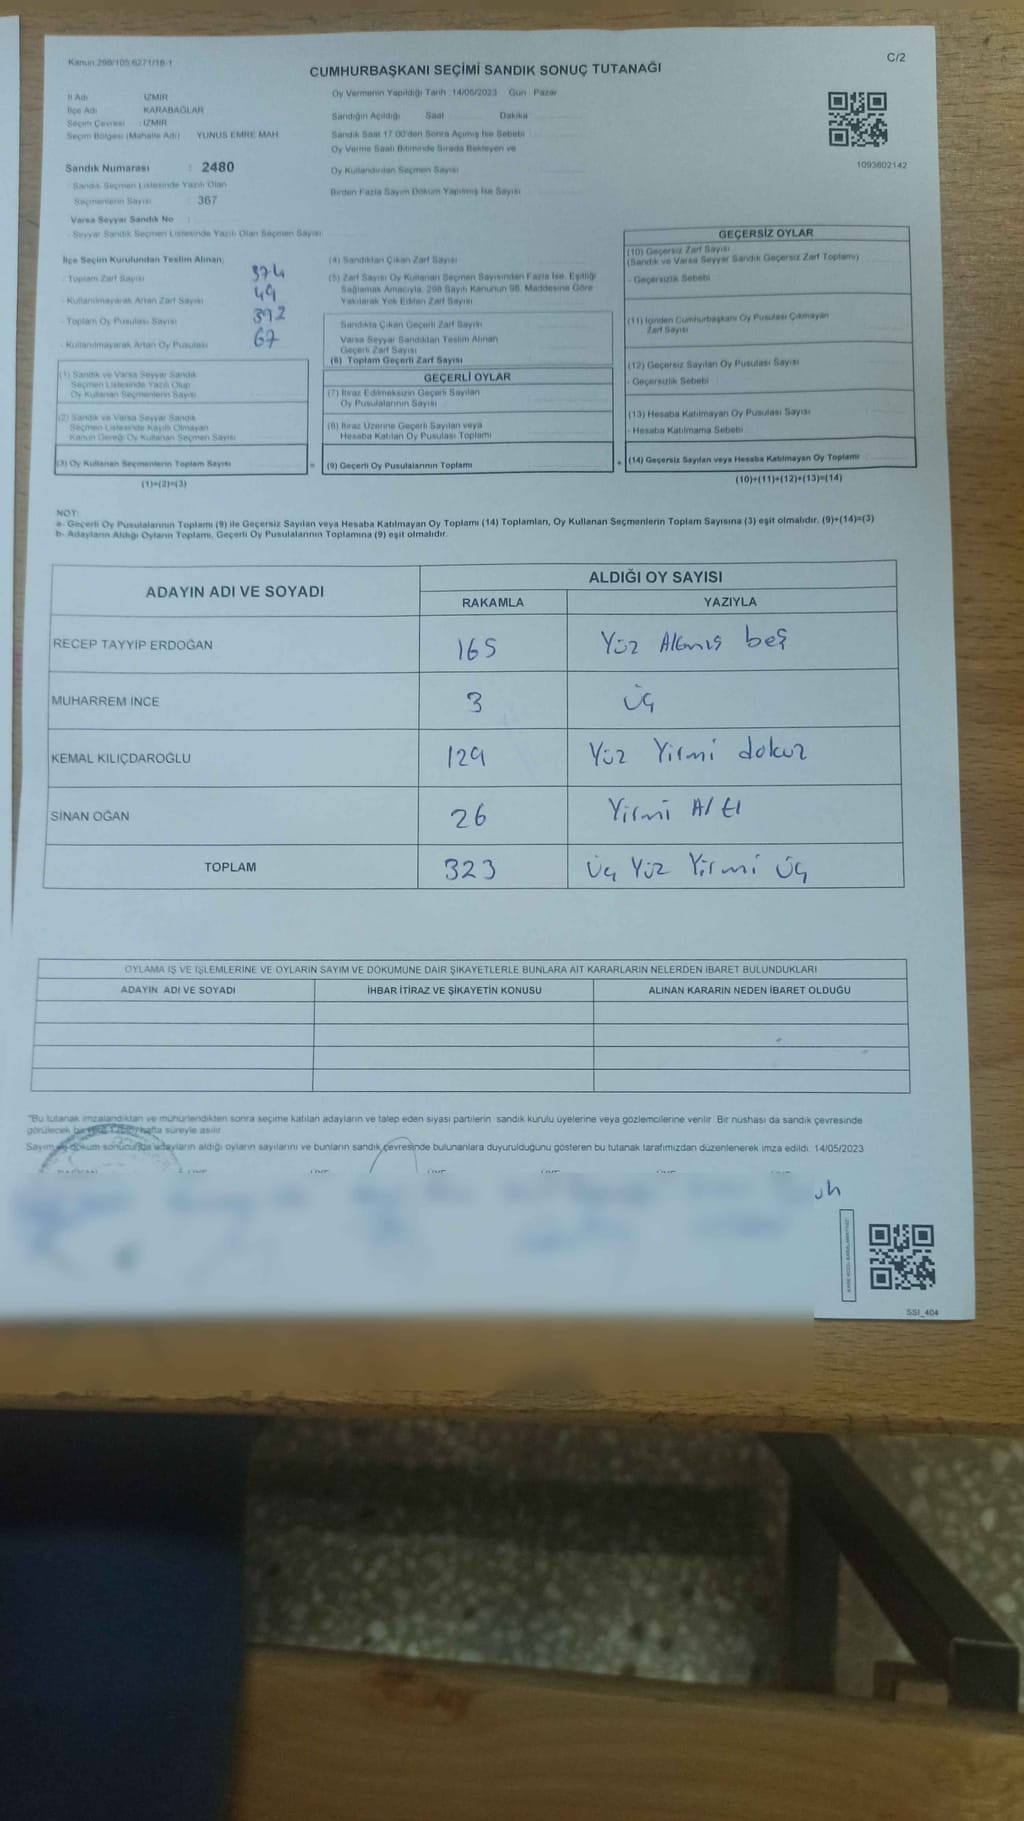 Kanun:298/105 6271/18-1
C/2
CUMHURBAŞKANI SEÇİMİ SANDIK SONUÇ TUTANAĞI
İl Adı İZMİR
İlçe Adı KARABAĞLAR
Seçim Çevresi : İZMİR
Seçim Bölgesi (Mahalle Adı) YUNUS EMRE MAH
Oy Vermenin Yapıldığı Tarih :14/05/2023 Gün Pazar
Sandığın Açıldığı Saat Dakika
Sandık Saat 17:00'den Sonra Açılmış İse Sebebi
Oy Verme Saati Bitiminde Sırada Bekleyen ve
Oy Kullandırılan Seçmen Sayısı
Birden Fazla Sayım Döküm Yapılmış İse Sayısı
1093602142
Sandık Numarası : 2480
- Sandık Seçmen Listesinde Yazılı Olan
Seçmenlerin Sayısı : 367
Varsa Seyyar Sandık No :
- Seyyar Sandık Seçmen Listesinde Yazılı Olan Seçmen Sayısı
İlçe Seçim Kurulundan Teslim Alınan;
- Toplam Zarf Sayısı 374
- Kullanılmayarak Artan Zarf Sayısı 49
- Toplam Oy Pusulası Sayısı 392
- Kullanılmayarak Artan Oy Pusulası 67
(1) Sandık ve Varsa Seyyar Sandık
Seçmen Listesinde Yazılı Olup
Oy Kullanan Seçmenlerin Sayısı
(2) Sandık ve Varsa Seyyar Sandık
Seçmen Listesinde Kayıtlı Olmayan
Kanun Gereği Oy Kullanan Seçmen Sayısı
(3) Oy Kullanan Seçmenlerin Toplam Sayısı
(1)+(2)=(3)
(4) Sandıktan Çıkan Zarf Sayısı
(5) Zarf Sayısı Oy Kullanan Seçmen Sayısından Fazla İse, Eşitliği
Sağlamak Amacıyla, 298 Sayılı Kanunun 98. Maddesine Göre
Yakılarak Yok Edilen Zarf Sayısı
Sandıkta Çıkan Geçerli Zarf Sayısı
Varsa Seyyar Sandıktan Teslim Alınan
Geçerli Zarf Sayısı
(6) Toplam Geçerli Zarf Sayısı
GEÇERLİ OYLAR
(7) İtiraz Edilmeksizin Geçerli Sayılan
Oy Pusulalarının Sayısı
(8) İtiraz Üzerine Geçerli Sayılan veya
Hesaba Katılan Oy Pusulası Toplamı
= (9) Geçerli Oy Pusulalarının Toplamı
GEÇERSİZ OYLAR
(10) Geçersiz Zarf Sayısı
(Sandık ve Varsa Seyyar Sandık Geçersiz Zarf Toplamı)
- Geçersizlik Sebebi
(11) İçinden Cumhurbaşkanı Oy Pusulası Çıkmayan
Zarf Sayısı
(12) Geçersiz Sayılan Oy Pusulası Sayısı
- Geçersizlik Sebebi
(13) Hesaba Katılmayan Oy Pusulası Sayısı
- Hesaba Katılmama Sebebi
+ (14) Geçersiz Sayılan veya Hesaba Katılmayan Oy Toplamı
(10)+(11)+(12)+(13)=(14)
NOT:
a- Geçerli Oy Pusulalarının Toplamı (9) ile Geçersiz Sayılan veya Hesaba Katılmayan Oy Toplamı (14) Toplamları, Oy Kullanan Seçmenlerin Toplam Sayısına (3) eşit olmalıdır. (9)+(14)=(3)
b- Adayların Aldığı Oyların Toplamı, Geçerli Oy Pusulalarının Toplamına (9) eşit olmalıdır.
ADAYIN ADI VE SOYADI ALDIĞI OY SAYISI
RAKAMLA YAZIYLA
RECEP TAYYİP ERDOĞAN 165 Yüz Altmış beş
MUHARREM İNCE 3 üç
KEMAL KILIÇDAROĞLU 129 Yüz Yirmi dokuz
SİNAN OĞAN 26 Yirmi Altı
TOPLAM 323 Üç Yüz Yirmi üç
OYLAMA İŞ VE İŞLEMLERİNE VE OYLARIN SAYIM VE DÖKÜMÜNE DAİR ŞİKAYETLERLE BUNLARA AİT KARARLARIN NELERDEN İBARET BULUNDUKLARI
ADAYIN ADI VE SOYADI İHBAR İTİRAZ VE ŞİKAYETİN KONUSU ALINAN KARARIN NEDEN İBARET OLDUĞU
*Bu tutanak imzalandıktan ve mühürlendikten sonra seçime katılan adayların ve talep eden siyasi partilerin sandık kurulu üyelerine veya gözlemcilerine verilir. Bir nüshası da sandık çevresinde
görülecek bir yere 1 hafta süreyle asılır.
Sayım ve döküm sonucunda adayların aldığı oyların sayılarını ve bunların sandık çevresinde bulunanlara duyurulduğunu gösteren bu tutanak tarafımızdan düzenlenerek imza edildi. 14/05/2023
SSI_404